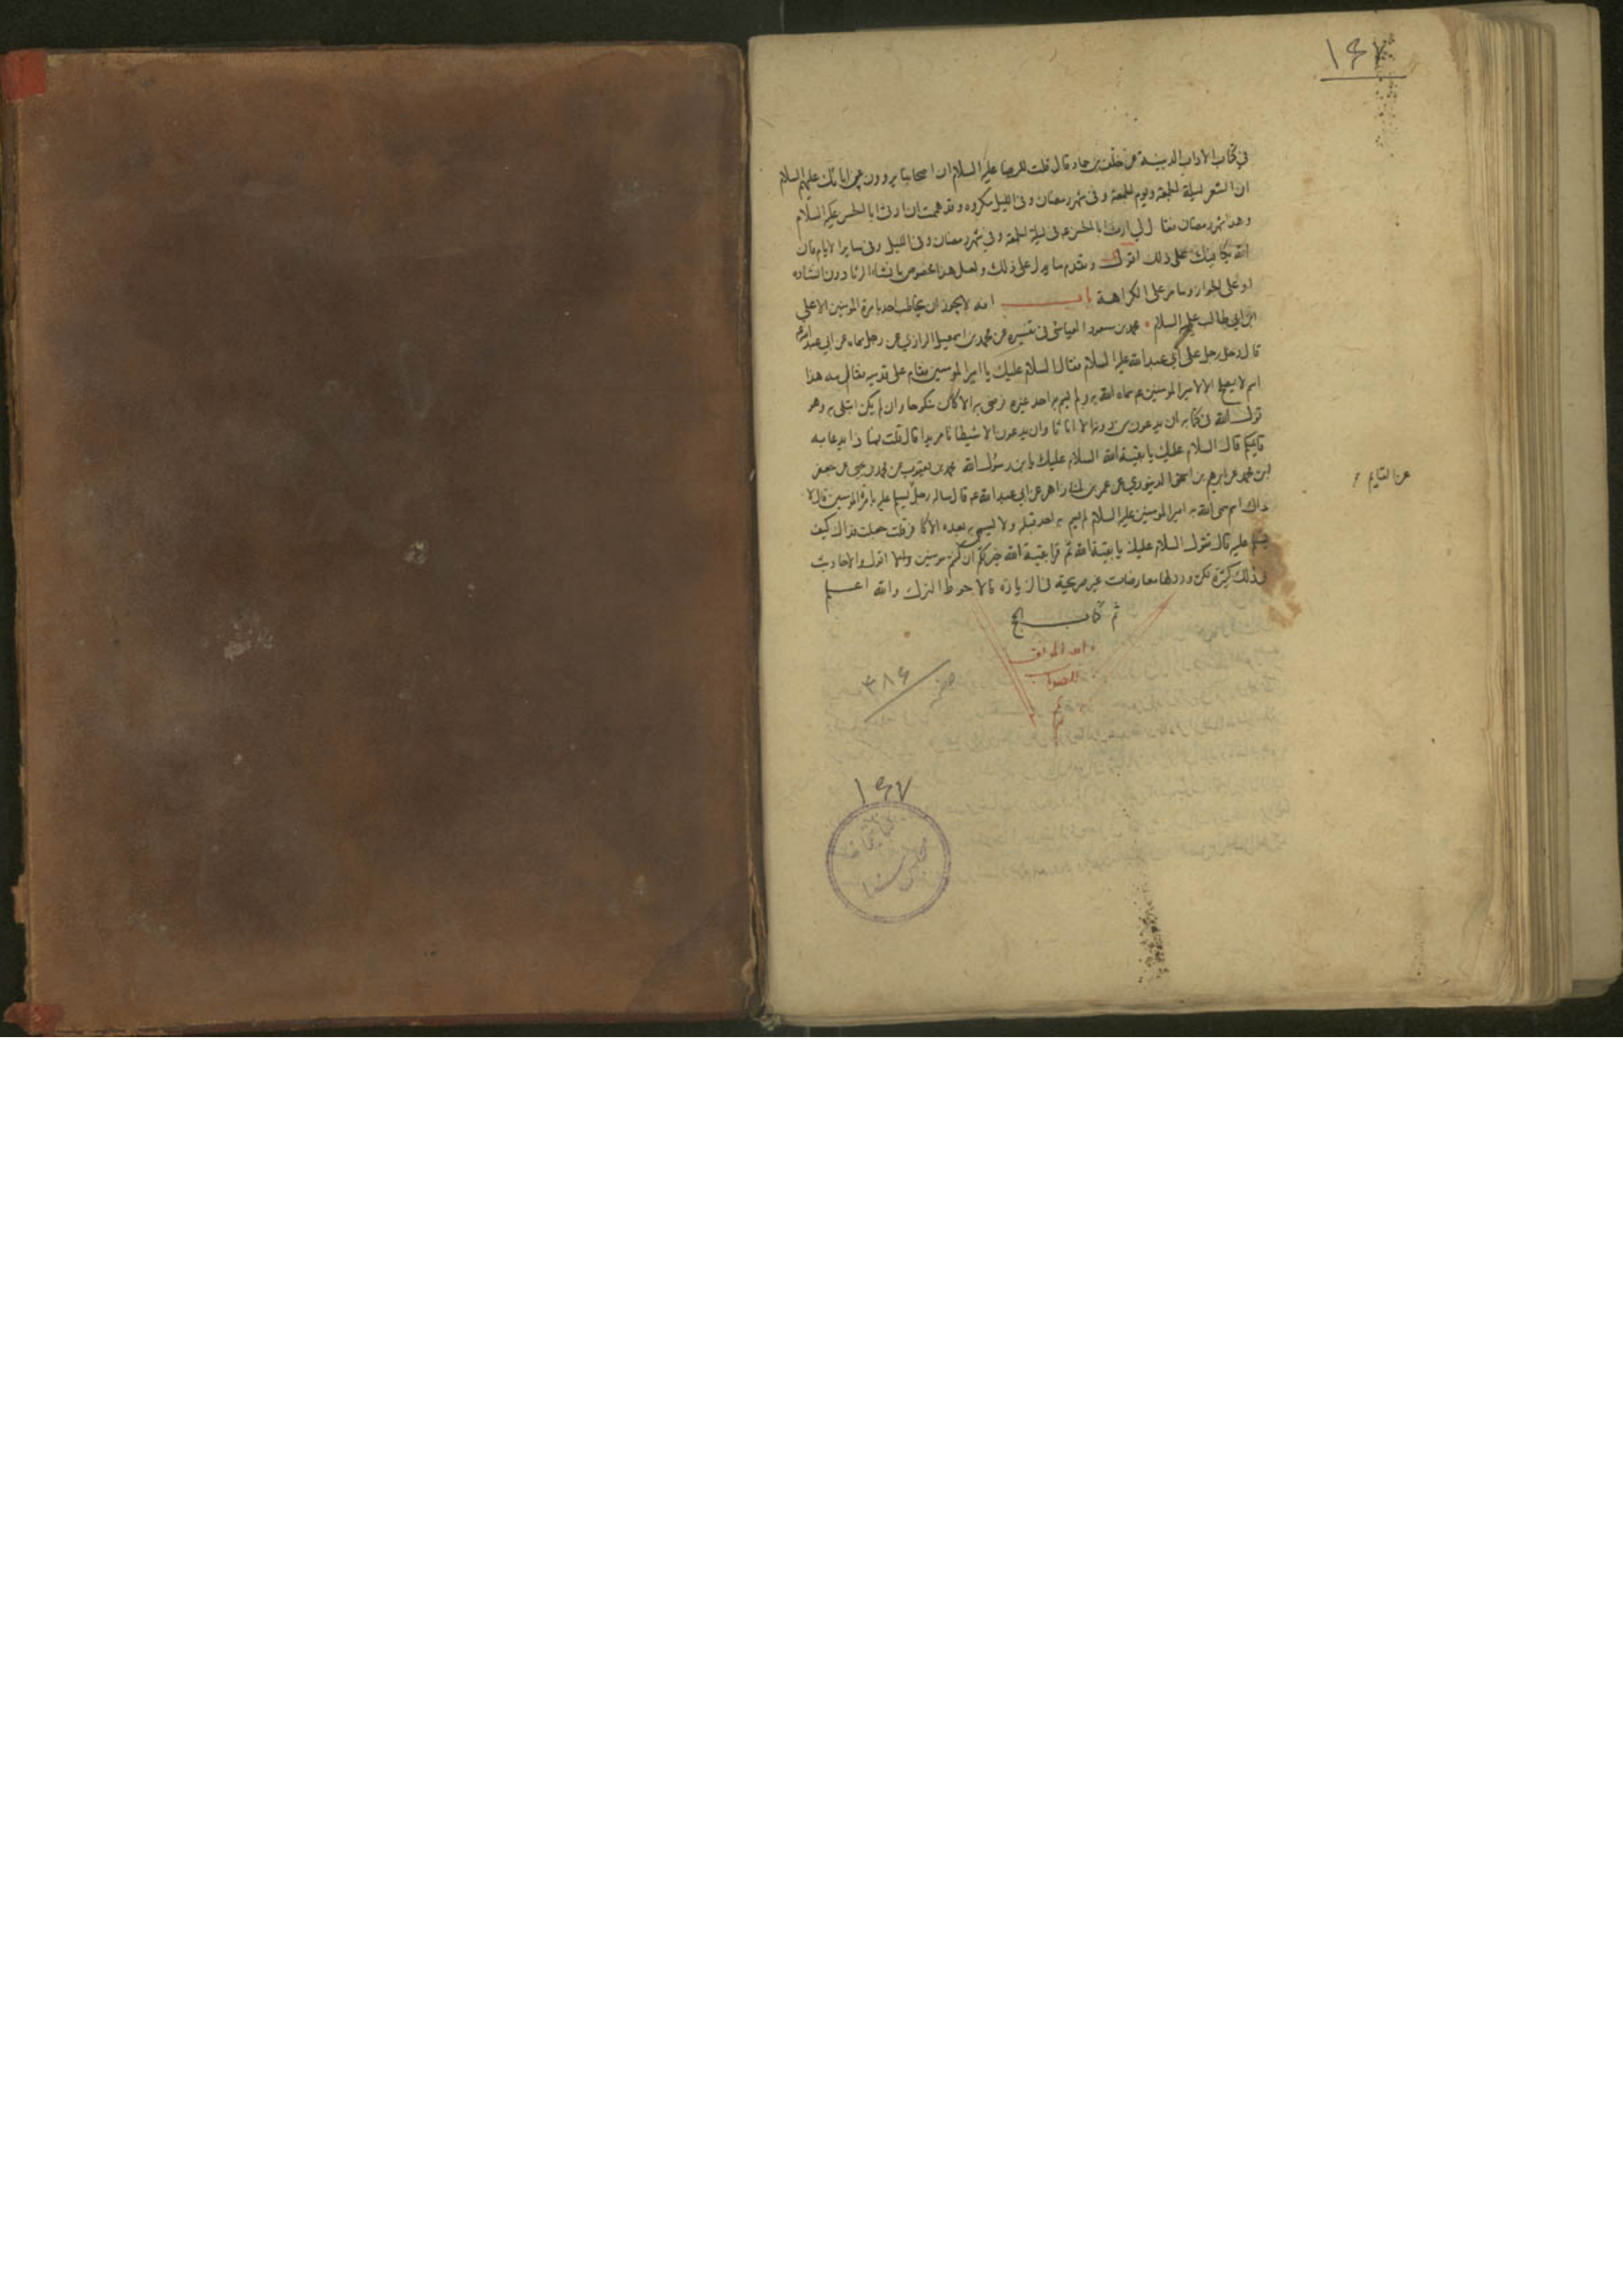 ١٤٧
في كتاب الاداب الدينية عن خلف بن حماد قال قلت للرضا عليه السلام ان اصحابنا يروون عن ابائك عليهم السلام
ان الشعر ليلة الجمعة ويوم الجمعة وفى شهر رمضان وفى الليل مكروه وقد هممت ان ارثى ابا الحسن عليه السلام
وهذا شهر رمضان فقال لي ارث ابا الحسن ع فى ليلة الجمعة وفي شهر رمضان وفى الليل وفى ساير الايام فان
الله يكافيك على ذلك اقول وتقدم ما يدل على ذلك ولعل هذا مخصوص بانشاء الرثا دون انشاده
او على الجواز وما مر على الكراهة باب انه لا يجوز ان يخاطب احد بامرة المومنين الا على
ابن ابي طالب عليه السلام محمد بن مسعود العياشى فى تفسيره عن محمد بن اسمعيل الرازي عن رجل سماه عن ابي عبد الله ع
قال دخل رجل على ابي عبد الله عليه السلام فقال السلام عليك يا امير المومنين فقام على قدميه فقال مه هذا
اسم لا يصلح الا لامير المومنين ع سماه الله به ولم يسم به احد غيره فرضى به الا كان منكوحا وان لم يكن ابتلى به وهو
قول الله فى كتابه ان يدعون من دونه الا اناثا وان يدعون الا شيطانا مريدا قال قلت فماذا يدعا به
قايمكم قال السلام عليك يا بقية الله السلام عليك يا بن رسول الله محمد بن يعقوب عن محمد بن يحيى عن جعفر
بن محمد عن ابرهيم بن اسحق الدينوري عن عمر بن زاهر عن ابي عبد الله ع قال ساله رجل يسلم عليه بامرة المومنين قال لا
عن القايم
ذاك اسم سمى الله به امير المومنين عليه السلام لم يسم به احد قبله ولا يسمى به بعده الا كافر قلت جعلت فداك كيف
يسلم عليه قال تقول السلام عليك يا بقية الله ثم قرا بقية الله خير لكم ان كنتم مومنين اقول والاحاديث
فى ذلك كثيرة لكن ورد لها معارضات غير صريحة فى الزيارة فالاحوط الترك والله اعلم
تم كتاب الحج
والله الموفق
للصواب
تم
٣٨٤
١٤٧
كتابخانه
مجلس سنا